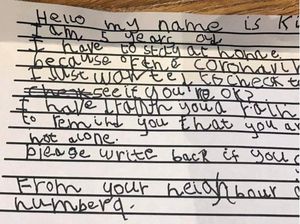 Hello my name is Ki
I am 5 years old
I have to stay at home
because of the coronavir
I just wanted to check t
check see if you're ok?
I have drawn you a rain
to remind you that you a
not alone.
please write back if you c
From your neighbour
number 9.